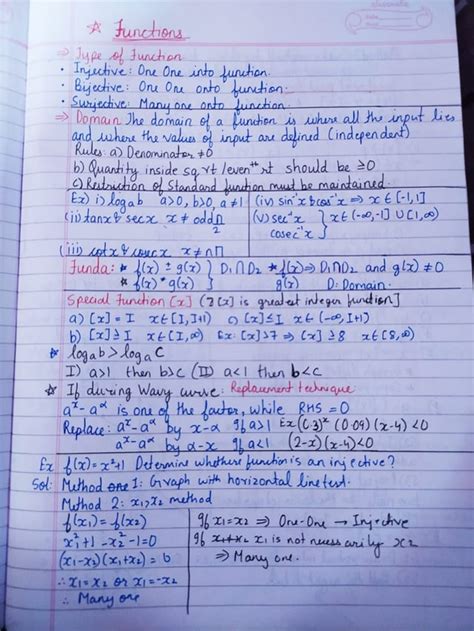 ☆ Functions
⇒ Type of Function
• Injective: One One into function.
• Bijective: One One onto function.
• Surjective: Many one onto function.
⇒ Domain The domain of a function is where all the input lies
and where the values of input are defined (independent)
Rules: a) Denominator ≠ 0
b) Quantity inside sq. rt /even th rt should be ≥ 0
c) Restriction of Standard function must be maintained
Ex) i) log a b a>0, b>0, a≠1
(ii) tanx & sec x x ≠ odd π/2
(iii) cot x & cosec x x ≠ nπ
(iv) sin⁻¹x & cos⁻¹x ⇒ x ∈ [-1,1]
(v) sec⁻¹x } x ∈ (-∞,-1] ∪ [1,∞)
cosec⁻¹x
Funda: * f(x) ± g(x) } D₁∩D₂ * f(x)/g(x) ⇒ D₁∩D₂ and g(x) ≠ 0
* f(x) * g(x) D: Domain.
Special function [x] ( [x] is greatest integer function]
a) [x] = I x∈[I, I+1) c) [x] ≤ I x∈(-∞, I+1)
b) [x] ≥ I x∈[I, ∞) Ex: [x]>7 ⇒ [x] ≥ 8 x∈[8,∞)
* log a b > log a c
I) a>1 then b>c (II) a<1 then b<c
☆ If during Wavy curve: Replacement technique
aˣ - a^α is one of the factor, while RHS = 0
Replace: aˣ - a^α by x-α If a>1 Ex (0.3)ˣ (0.09)(x-4) <0
aˣ - a^α by α-x If a<1 (2-x)(x-4)<0
Ex f(x) = x²+1 Determine whether function is an injective?
Sol: Method 1: Graph with horizontal line test.
Method 2: x₁, x₂ method
f(x₁) = f(x₂)
x₁²+1 - x₂² - 1 = 0
(x₁-x₂)(x₁+x₂) = 0
∴ x₁ = x₂ or x₁ = -x₂
∴ Many one
If x₁ = x₂ ⇒ One-One → Injective
If x₁ is not necessarily x₂
⇒ Many one.